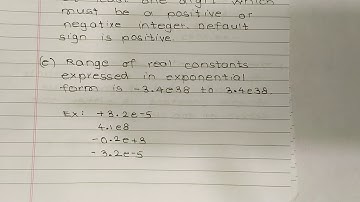 least one digit which
must be a positive or
negative integer. Default
sign is positive.
(e) Range of real constants
expressed in exponential
form is -3.4e38 to 3.4e38.
Ex: +3.2e-5
4.1e8
-0.2e+3
-3.2e-5